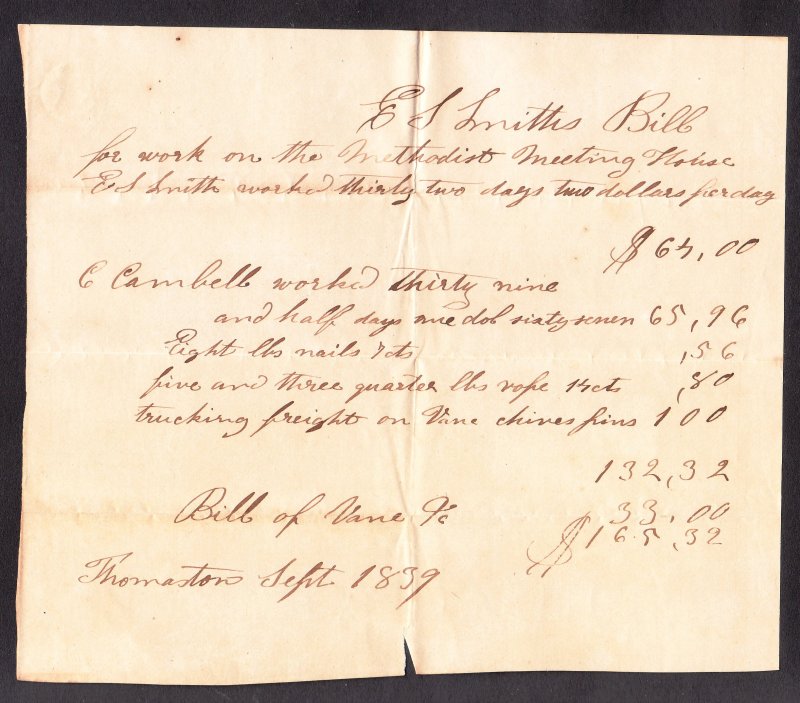 E S Smiths Bill
for work on the Methodist Meeting House
E S Smith worked thirty two days two dollars per day
$64,00
C Cambell worked thirty nine
and half days one dol sixty seven 65,96
Eight lbs nails 7 cts ,56
five and three quarter lbs rope 14 cts ,80
trucking freight on Vane 1 00
132,32
Bill of Vane &c 33,00
$165,32
Thomaston Sept 1839